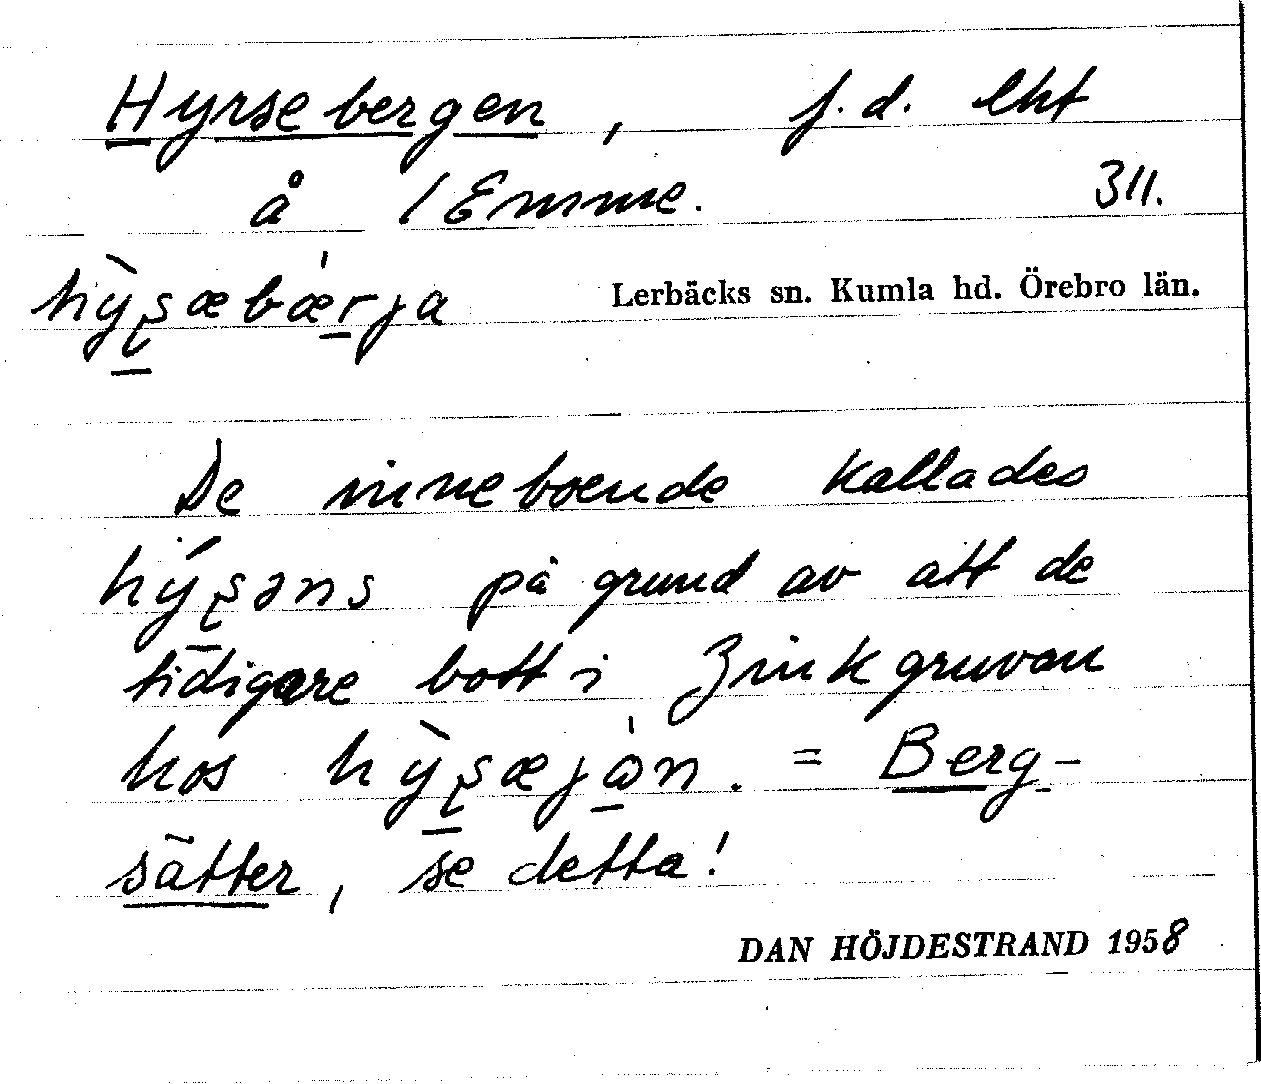 Hyrsebergen, f.d. lht
å 1 Emme. 311.
hỳ̠ʂæbæ̀r̠ja Lerbäcks sn. Kumla hd. Örebro län.
De inneboende kallades
hý̠ʂəns på grund av att de
tidigare bott i Zinkgruvan
hos hỳʂæjɷ̀n. = Berg-
sätter, se detta!
DAN HÖJDESTRAND 1958